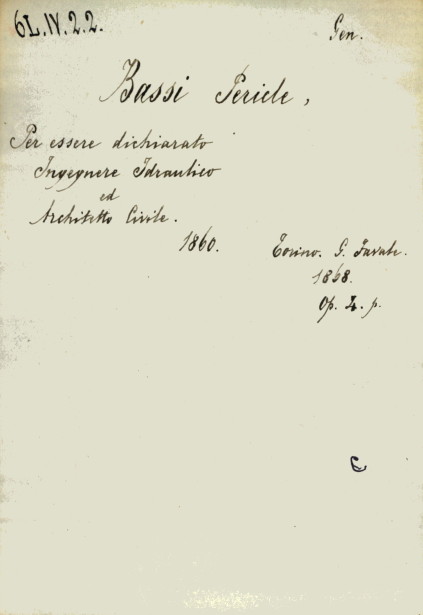 6L.IV.2.2.
Gen.
Bassi Pericle,
Per essere dichiarato
Ingegnere Idraulico
ed
Architetto Civile.
1860.
Torino. G. Favale.
1868.
Op. 4. p.
C